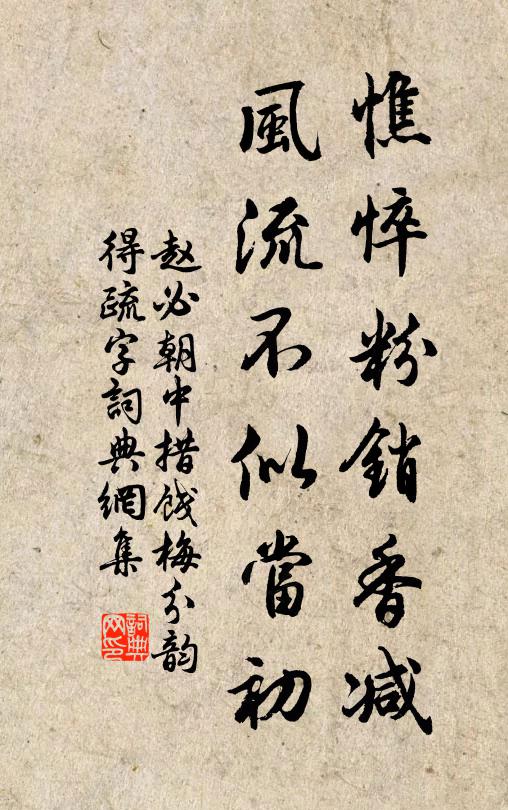 憔悴粉銷香减
風流不似當初
赵必朝中措餞梅分韵
得疏字詞典網集
詞典
网印